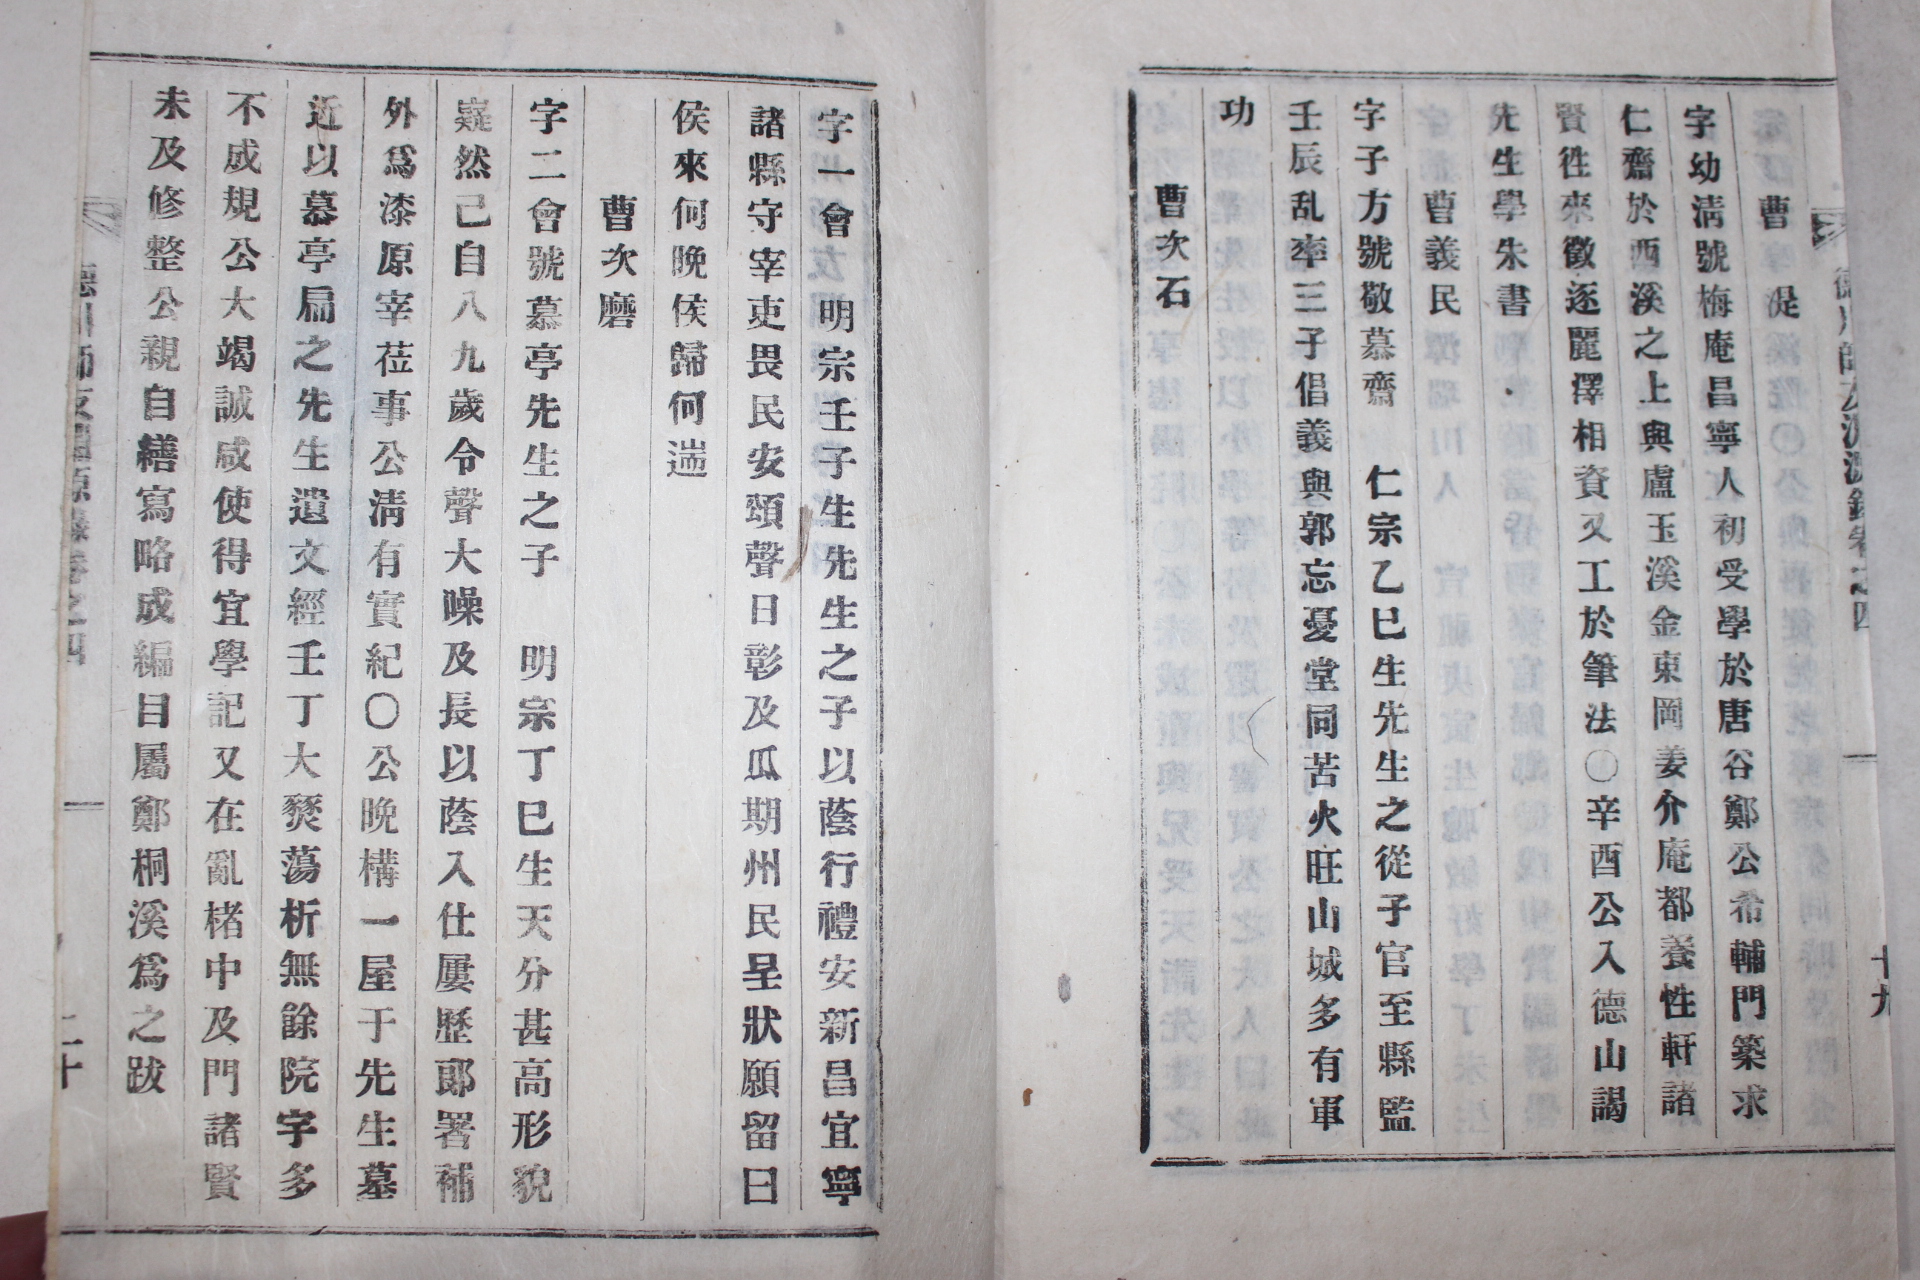 德川師友淵源錄卷之四 十九
曹湜
字幼淸號梅庵昌寧人初受學於唐谷鄭公希輔門築求
仁齋於西溪之上與盧玉溪金東岡姜介庵都養性軒諸
賢徃來徵逐麗澤相資又工於筆法〇辛酉公入德山謁
先生學朱書
曹義民
字子方號敬慕齋 仁宗乙巳生先生之從子官至縣監
壬辰乱率三子倡義與郭忘憂堂同苦火旺山城多有軍
功
曹次石
字一會 明宗壬子生先生之子以蔭行禮安新昌宜寧
諸縣守宰吏畏民安頌聲日彰及瓜期州民呈狀願留曰
侯來何晩侯歸何遄
曹次磨
字二會號慕亭先生之子 明宗丁巳生天分甚高形貌
嶷然已自八九歲令聲大噪及長以蔭入仕屢歷郞署補
外爲漆原宰莅事公淸有實紀〇公晩構一屋于先生墓
近以慕亭扁之先生遺文經壬丁大燹蕩析無餘院字多
不成規公大竭誠咸使得宜學記又在亂楮中及門諸賢
未及修整公親自繕寫略成編目屬鄭桐溪爲之跋
德川師友淵源錄卷之四 二十